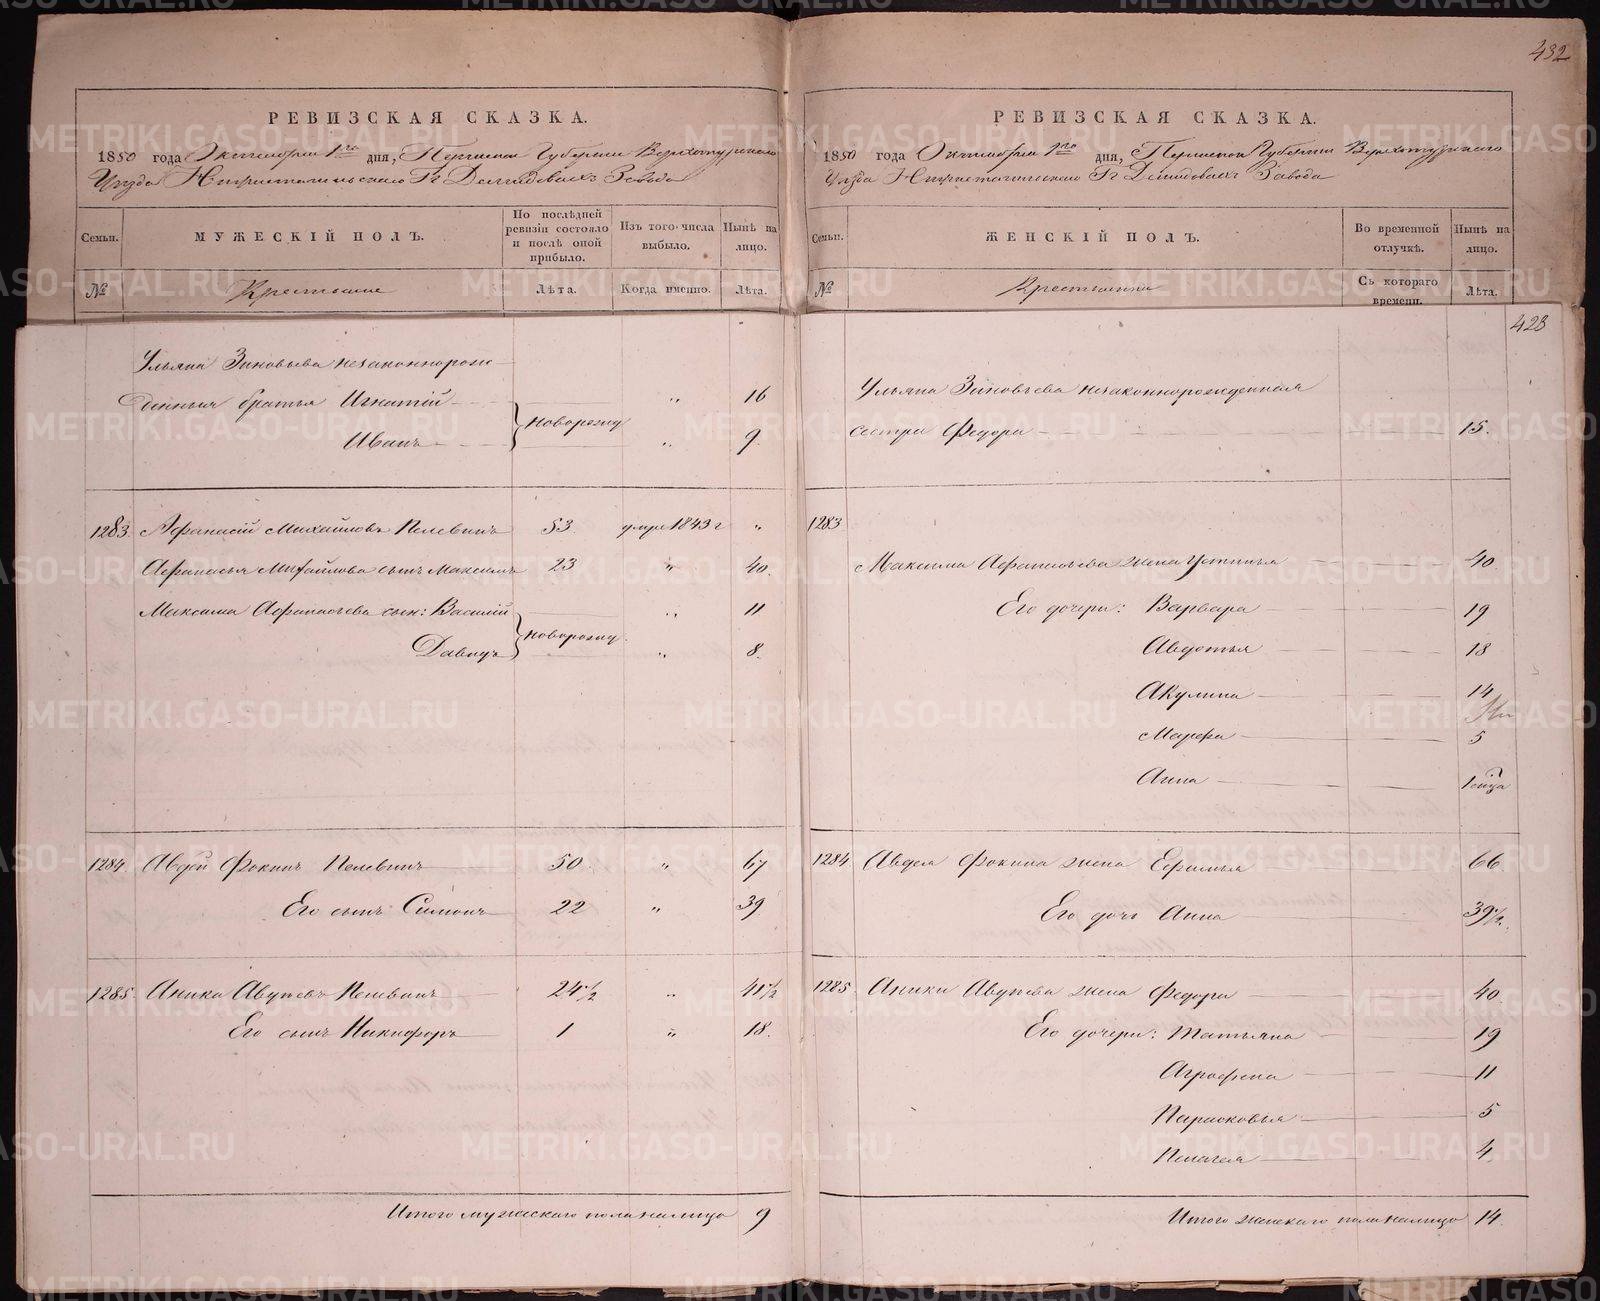 432
РЕВИЗСКАЯ СКАЗКА.
1850 года Октября 1го дня, Пермской Губернии Верхотурского
Уезда Гг Демидовыхъ Завода
Семьи.
МУЖЕСКІЙ ПОЛЪ.
По послѣдней ревизіи состояло и послѣ оной прибыло.
Изъ того числа выбыло.
Нынѣ на лицо.
№
Крестьяне
Лѣта.
Когда именно.
Лѣта.
Ульяна Зиновьева незаконнорож-
денныя братья Игнатій " 16
Иванъ новорожд " 9.
1283. Афанасій Михайловъ Пелевинъ 53 умре 1843 г "
Афанасья Михайлова сынъ Максимъ 23 " 40.
Максима Афанасьева сын: Василій " 11
Давидъ новорожд. " 8.
1284. Авдѣй Фокинъ Пелевинъ 50. " 67
Его сынъ Симонъ 22 " 39
1285. Аника Авунсвъ Пелевинъ 24 1/2 " 41 1/2
Его сынъ Никифоръ 1 " 18.
Итого мужескаго пола налицо 9
РЕВИЗСКАЯ СКАЗКА.
1850 года Октября 1го дня, Пермской Губерніи Верхотурскаго
Уѣзда Гг Демидовыхъ Завода
Семьи.
ЖЕНСКІЙ ПОЛЪ.
Во временной отлучкѣ.
Нынѣ на лицо.
№
Крестьянки
Съ котораго времени.
Лѣта.
423
Ульяна Зиновьева незаконнорожденная
сестра Федора 15.
1283
Максима Афанасьева жена Устинья 40
Его дочери: Варвара 19
Авдотья 18
Акулина 14
Марфа 5
Анна 1
1284. Авдея Фокина жена Ефимья 66
Его дочь Анна 39 1/2.
1285. Аники жена Федора 40.
Его дочери: Татьяна 19
Аграфена 11
Парасковья 5
Пелагея 4
Итого женскаго пола налицо 14.
METRIKI.GASO-URAL.RU